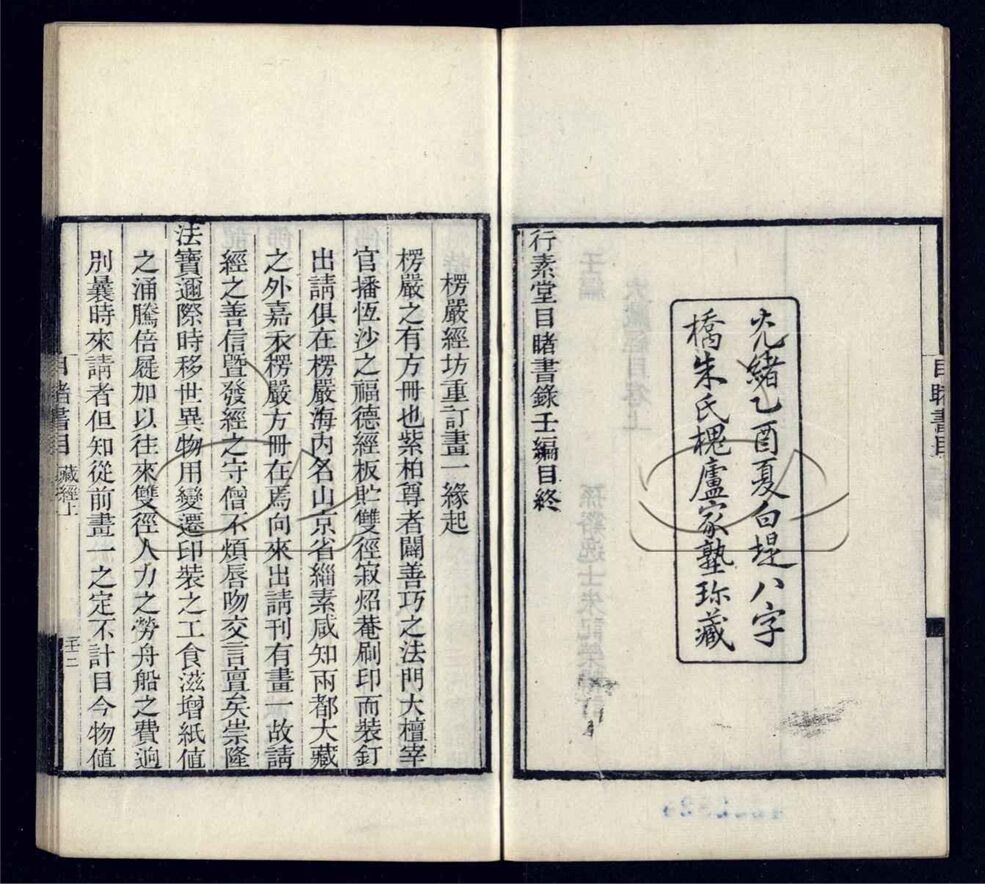 行素堂目睹書錄壬編目終
光緒乙酉夏白堤八字
橋朱氏槐廬家塾珍藏
目睹書目
楞嚴經坊重訂畫一緣起
楞嚴之有方冊也紫柏尊者闢善巧之法門大檀宰
官播恆沙之福德經板貯雙徑寂炤菴刷印而裝釘
出請俱在楞嚴海內名山京省緇素咸知兩都大藏
之外嘉禾楞嚴方冊在焉向來出請刊有畫一故請
經之善信暨發經之守僧不煩唇吻交言亶矣崇隆
法寶邇際時移世異物用變遷印裝之工食滋增紙值
之涌騰倍屣加以往來雙徑人力之勞舟船之費逈
別曩時來請者但知從前畫一之定不計目今物値
目睹書目
藏經上
壬二